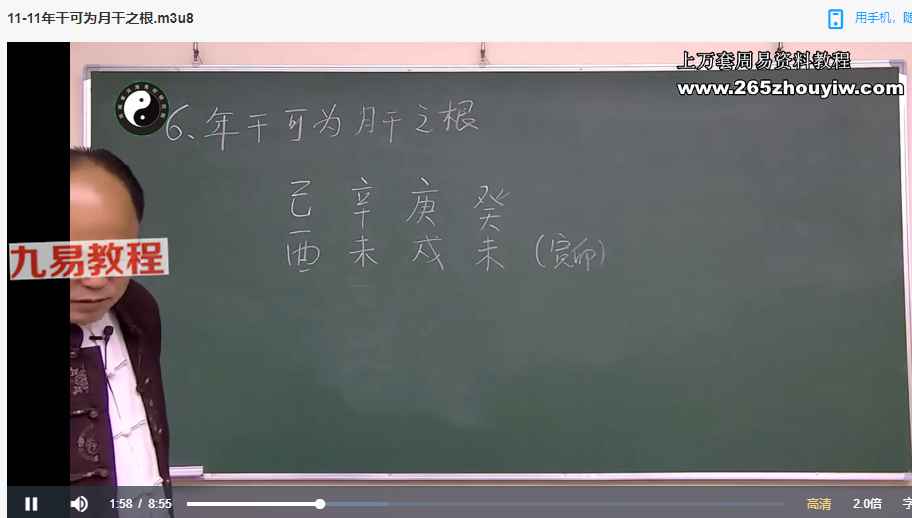 11-11年干可为月干之根.m3u8
用手机，随
上万套周易资料教程
www.265zhouyiw.com
6、年干可为月干之根
己 辛 庚 癸
酉 未 戌 未 (寅卯)
九易教程
1:58 / 8:55
高清 2.0倍 字